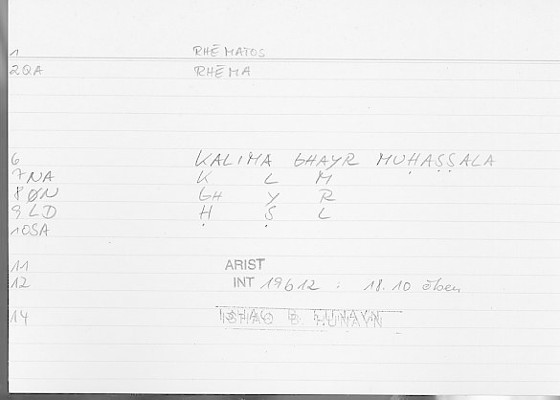 1 RHĒMATOS
2QA RHĒMA
6 KALIMA GHAYR MUḤAṢṢALA
7NA K L M
8ØN GH Y R
9LD Ḥ Ṣ L
10SA
11 ARIST
12 INT 19b12 : 18.10 ōben
14 ISHAQ B. HUNAYN